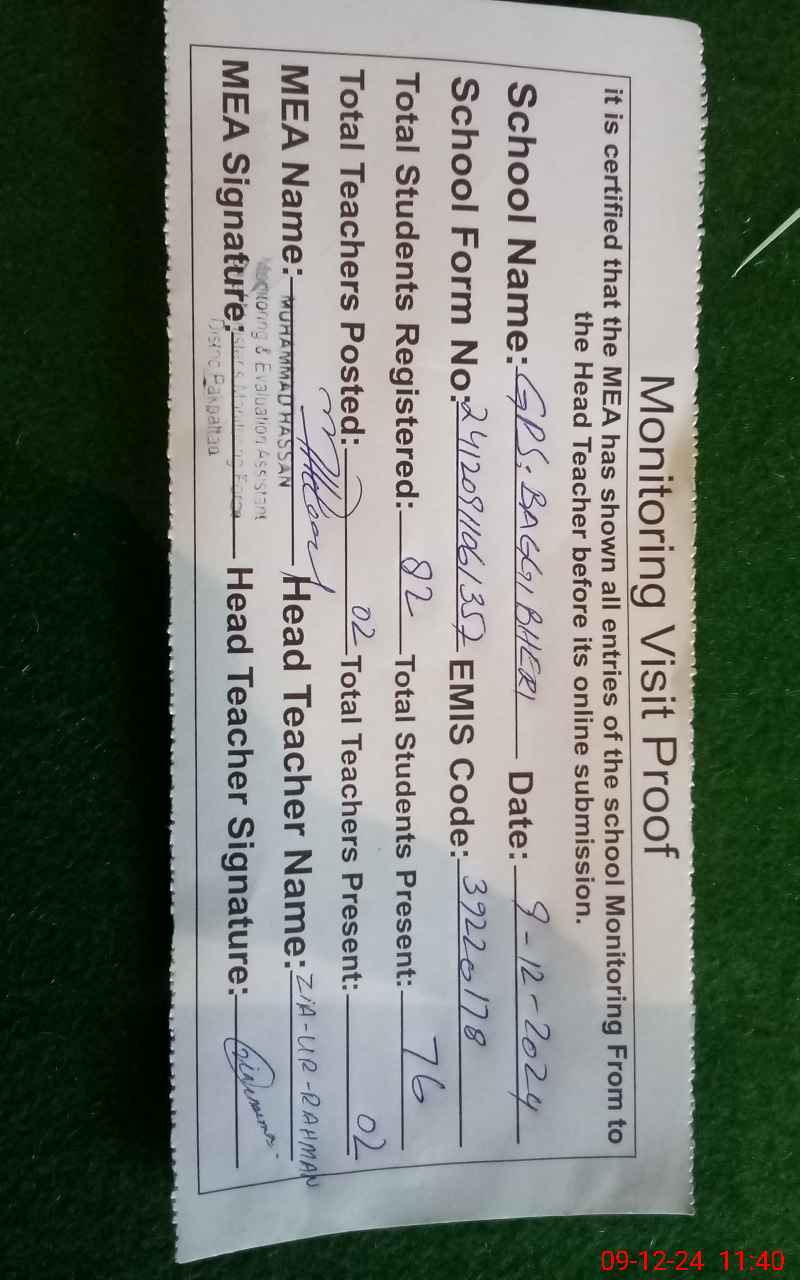 Monitoring Visit Proof
it is certified that the MEA has shown all entries of the school Monitoring From to
the Head Teacher before its online submission.
School Name: GPS: BAGGI BHERI Date: 9-12-2024
School Form No: 24120911061357 EMIS Code: 39220178
Total Students Registered: 82 Total Students Present: 76
Total Teachers Posted: 02 Total Teachers Present: 02
MEA Name: MUHAMMAD HASSAN Head Teacher Name: ZIA-UR-RAHMAN
Monitoring & Evaluation Assistant
MEA Signature: Head Teacher Signature:
Monitoring Force
Distric Pakpattan
09-12-24 11:40